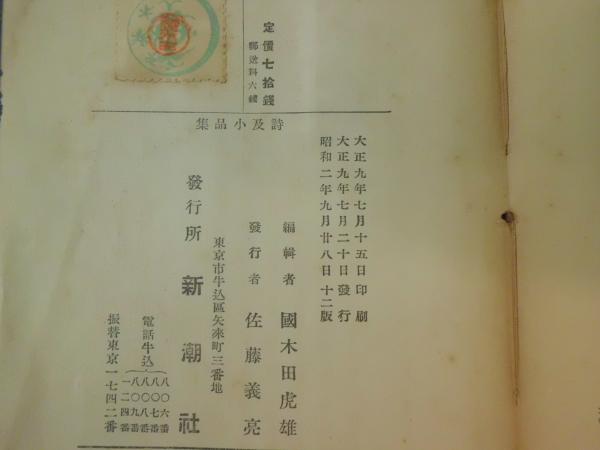 定價七拾錢
郵送料六錢
詩及小品集
大正九年七月十五日印刷
大正九年七月二十日發行
昭和二年九月廿八日十二版
編輯者 國木田虎雄
發行者 佐藤義亮
東京市牛込區矢來町三番地
發行所 新潮社
電話牛込
八〇六番
八〇七番
八〇八番
八〇九番
一二四番
振替東京一七四二番